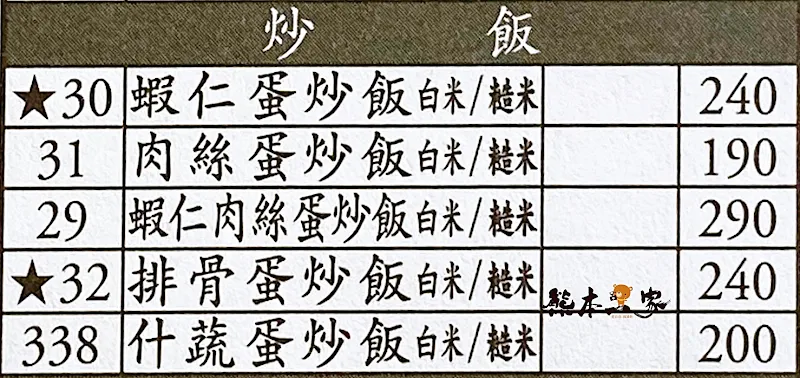 炒飯
★30 蝦仁蛋炒飯白米/糙米 240
31 肉絲蛋炒飯白米/糙米 190
29 蝦仁肉絲蛋炒飯白米/糙米 290
★32 排骨蛋炒飯白米/糙米 240
熊本一家
338 什蔬蛋炒飯白米/糙米 200